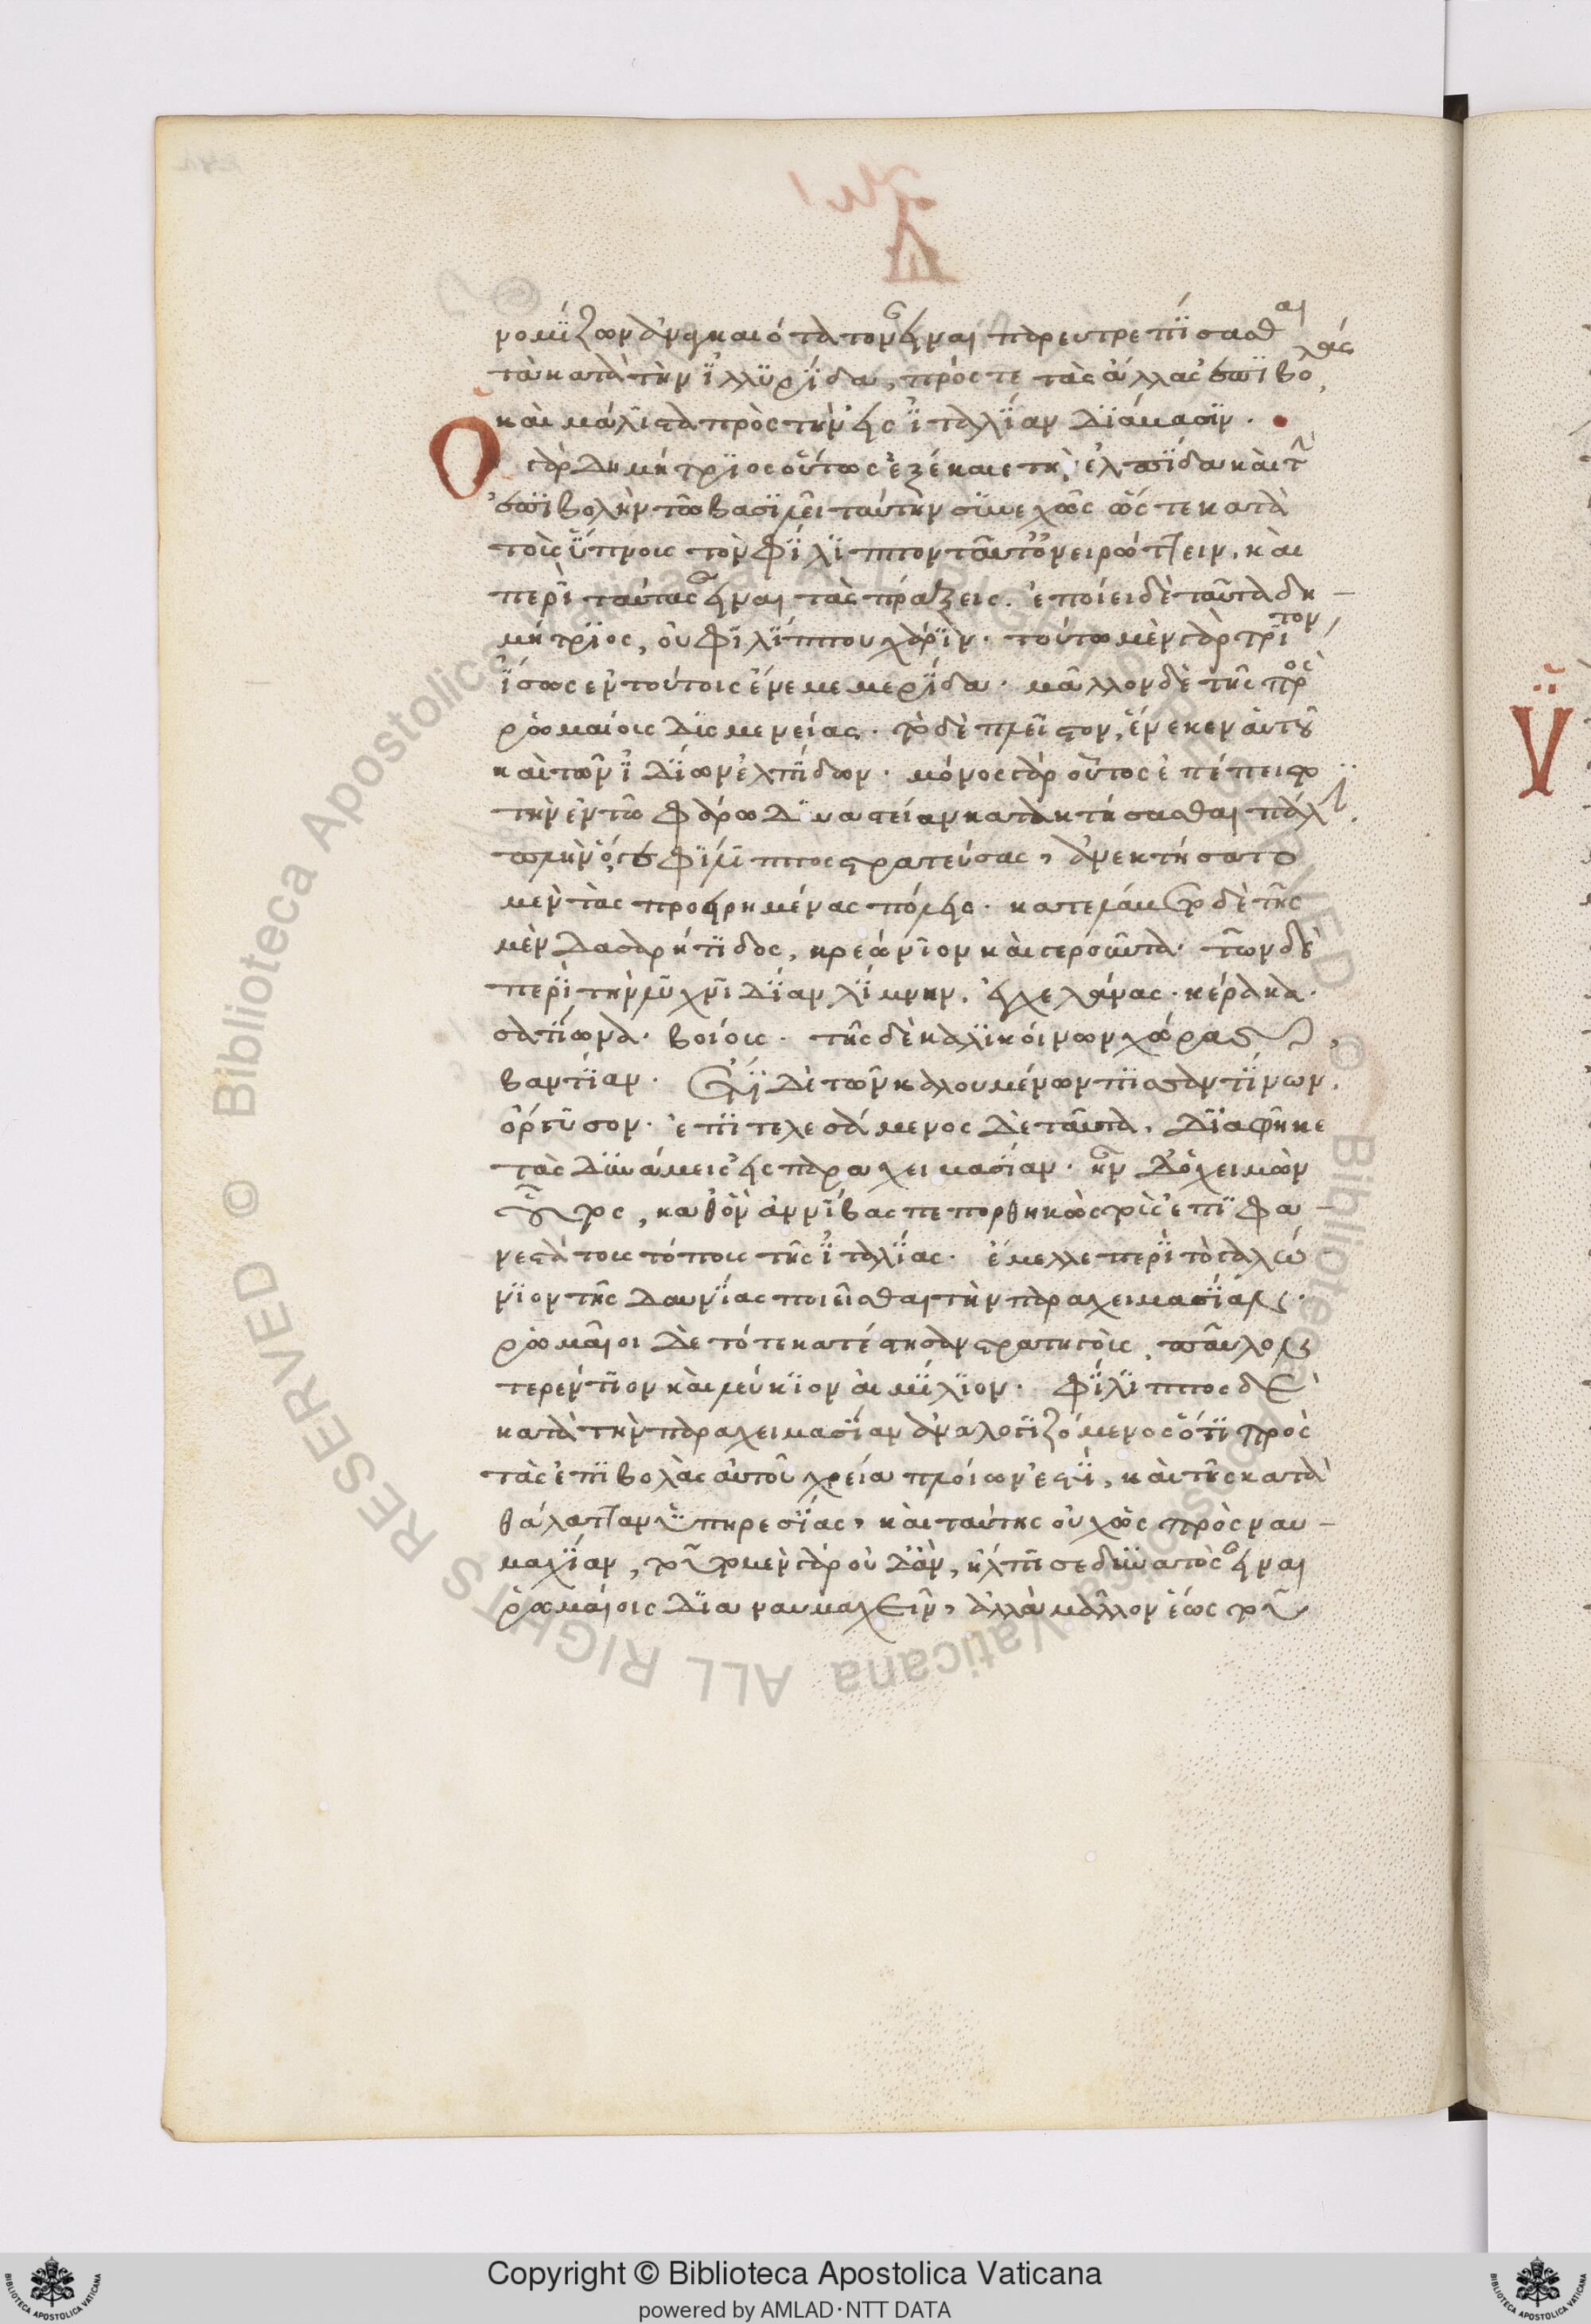 νομίζων ἀναγκαιότατον εἶναι παρευτρεπίσασθαι
τὰ κατὰ τὴν ἰλλυρίδα, πρός τε τὰς ἄλλας ἐπιβολάς,
καὶ μάλιστα πρὸς τὴν εἰς ἰταλίαν διάβασιν.
Ὁ γὰρ δημήτριος οὕτως ἐξέκαιε τὴν ἐλπίδα καὶ τὴν
ἐπιβολὴν τῶ βασιλεῖ ταύτην συνεχῶς ὥστε κατὰ
τοὺς ὕπνους τὸν φίλιππον ταῦτ' ὀνειρώττειν, καὶ
περὶ ταύτας εἶναι τὰς πράξεις. ἐποίει δὲ ταῦτα δη-
μήτριος, οὐ φιλίππου χάριν. τούτω μὲν γὰρ τρίτην
ἴσως ἐν τούτοις ἔνεμε μερίδα. μᾶλλον δὲ τῆς πρὸς
ῥωμαίους δυσμενείας. τὸ δὲ πλεῖστον, ἕνεκεν αὑτοῦ
καὶ τῶν ἰδίων ἐλπίδων. μόνως γὰρ οὕτως ἐπέπειστο
τὴν ἐν τῶ φάρω δυναστείαν κατακτήσασθαι πάλιν.
πλὴν ὅ γε φίλιππος στρατεύσας, ἀνεκτήσατο
μὲν τὰς προειρημένας πόλεις. κατελάβετο δὲ τῆς
μὲν δασαρήτιδος, κρεώνιον καὶ γεροῦντα. τῶν δὲ
περὶ τὴν λυχνιδίαν λίμνην, ἐγχελάνας. κέρακα.
σατίωνα. βοιούς. τῆς δὲ καλικοίνων χώρας,
βαντίαν. ἔτι δὲ τῶν καλουμένων πισαντίνων,
ὀργυσόν. ἐπιτελεσάμενος δὲ ταῦτα, διαφῆκε
τὰς δυνάμεις εἰς παραχειμασίαν. ἦν δ' ὁ χειμὼν
οὗτος, καθ' ὃν ἀννίβας πεπορθηκὼς τοὺς ἐπιφα-
νεστάτους τόπους τῆς ἰταλίας. ἔμελλε περὶ τὸ γαλεώ
νιον τῆς δαυνίας ποιεῖσθαι τὴν παραχειμασίαν.
ῥωμαῖοι δὲ τότε κατέστησαν στρατηγοὺς, παῦλον
τερέντιον καὶ λεύκιον αἰμίλιον. φίλιππος δὲ
κατὰ τὴν παραχειμασίαν ἀναλογιζόμενος ὅτι πρὸς
τὰς ἐπιβολὰς αὐτοῦ χρεία πλοίων ἐστὶ, καὶ τῆς κατὰ
θάλατταν ὑπηρεσίας, καὶ ταύτης οὐχ ὡς πρὸς ναυ-
μαχίαν, τοῦτο μὲν γὰρ οὐδ' ἂν, ἤλπισε δυνατὸς εἶναι
ῥωμαίοις διαναυμαχεῖν, ἀλλὰ μᾶλλον ἕως τοῦ